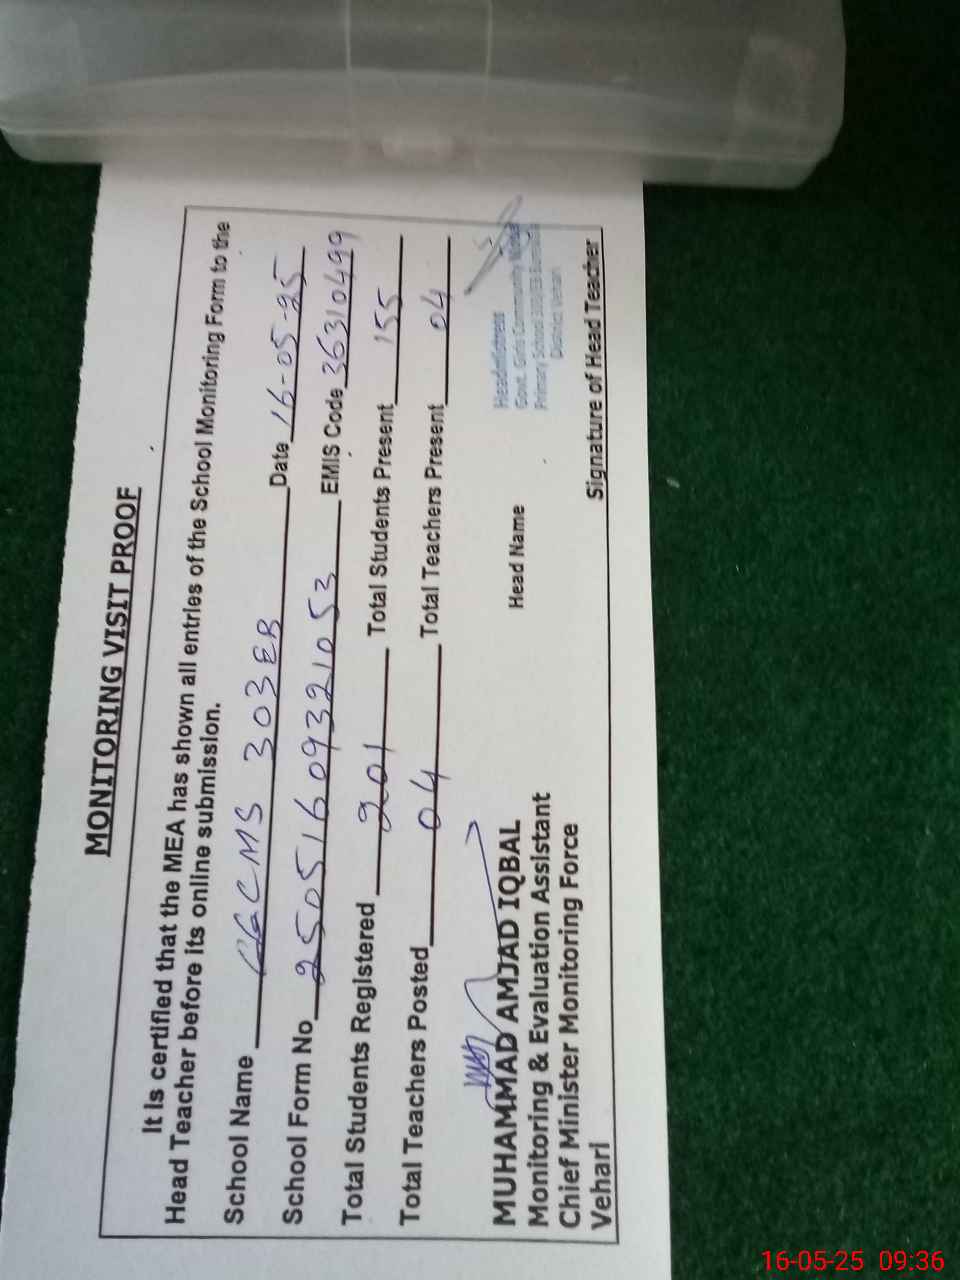 MONITORING VISIT PROOF
It is certified that the MEA has shown all entries of the School Monitoring Form to the
Head Teacher before its online submission.
School Name GGCMS 303EB Date 16-05-25
School Form No 25051609321053 EMIS Code 36310499
Total Students Registered 201 Total Students Present 155
Total Teachers Posted 04 Total Teachers Present 04
MUHAMMAD AMJAD IQBAL
Monitoring & Evaluation Assistant
Chief Minister Monitoring Force
Vehari
Head Name
Headmistress
Govt. Girls Community Model
Primary School 303/EB Burewala
District Vehari
Signature of Head Teacher
16-05-25 09:36